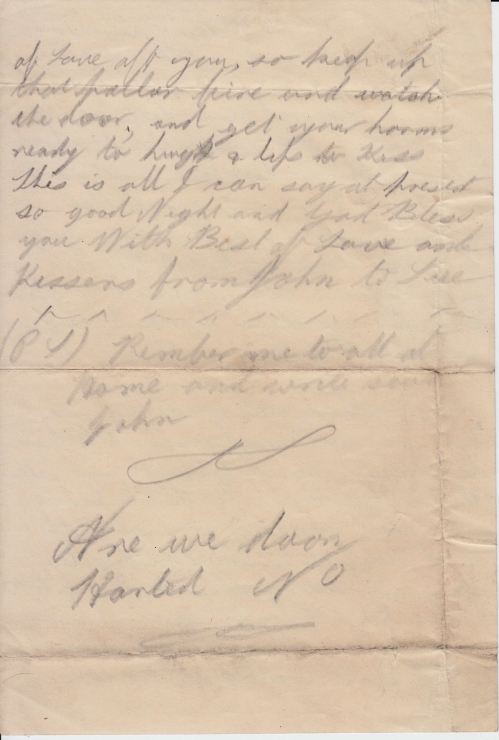 of Love off you, so keep up
that parlor fire and watch
the door, and get your harms
ready to hug & lips to Kiss
This is all I can say at present
so good Night and God Bless
you With Best of Love and
Kissers from John to
(P S) Rember me to all at
home and write soon
John
Are we doon
Harted NO